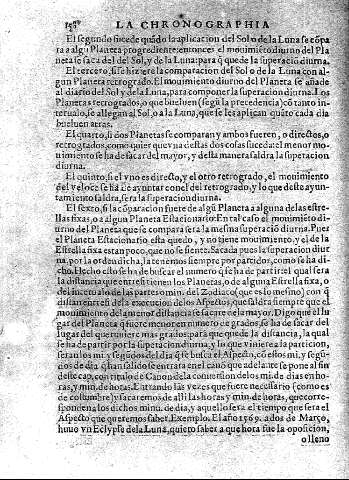 LA CHRONOGRAPHIA
El segundo sucede quãdo la aplicacion del Sol o de la Luna se cõpa
ra a algũ Planeta progrediente: entonces el mouimiẽto diurno del Pla
neta se saca del del Sol, y de la Luna: para q̃ quede la superaciõ diurna.
El tercero, si se hiziere la comparacion del Sol o de la Luna con al-
gun Planeta retrogrado. El mouimiento diurno del Planeta se añade
al diario del Sol, y de la Luna, para componer la superaciõ diurna. Los
Planetas retrogrados, o que bueluen (segũ la precedencia) cõ tanto in
teruallo, se allegan al Sol, o a la Luna, que se les aplican quãto cada dia
bueluen atras.
El quarto, si dos Planetas se comparan y ambos fueren, o directos, o
retrogrados, como quier que vna destas dos cosas suceda: el menor mo
uimiẽto se ha de sacar del mayor, y desta manera saldra la superacion
diurna.
El quinto, si el vno es directo, y el otro retrogrado, el mouimiento
del veloce se ha de ayuntar con el del retrogrado, y lo que deste ayun-
tamiento saldra, sera la superacion diurna.
El sexto, si la cõparaciõn fuere de algũ Planeta a alguna de las estre
llas fixas, o a algun Planeta Estacionario. En tal caso el mouimiẽto diur
no del Planeta que se compara sera la mesma superaciõ diurna. Pues
el Planeta Estacionario esta quedo, y no tiene mouimiento, y el de la
Estrella fixa es tan poco, que no se siente: Sacada pues la superacion diur
na, por la orden dicha, la tenemos siempre por partidor, como se ha di-
cho. Hecho esto se ha de buscar el numero q̃ se ha de partir: el qual sera
la distancia que entre si tienen los Planetas, o de alguna Estrella fixa, o
del interualo de las partes o min. del Zodiaco (que es lo mesmo) con q̃
distan entre si de la execucion de los Aspectos, que saldra siempre que el
mouimiento del menor distancia se sacare de la mayor. Digo que el lu
gar del Planeta q̃ fuere menor en numero de grados, se ha de sacar del
lugar del que tuuiere mas grados: para que quede la distancia, la qual
se ha de partir por la superaciõn diurna, y lo que viniere a la particion,
seran los mi. y segũdos del dia q̃ se busca el Aspecto, cõ estos mi. y segũ-
dos de dia q̃ han salido se entrara en el canõ que adelante se pone al fin
deste cap. con titulo de Canon de la conuersion de los mi. de dias en ho-
ras, y min. de horas. Entrando las vezes que fuere necessario (como es
de costumbre) y sacaremos de alli las horas y min. de horas, que corres-
ponden a los dichos minu. de dia, y aquello sera el tiempo que sera el
Aspecto que queremos saber. Exemplo. El año 1569. a dos de Março,
huuo vn Eclypse de la Luna, quiero saber a que hora fue la oposicion,
o lleno